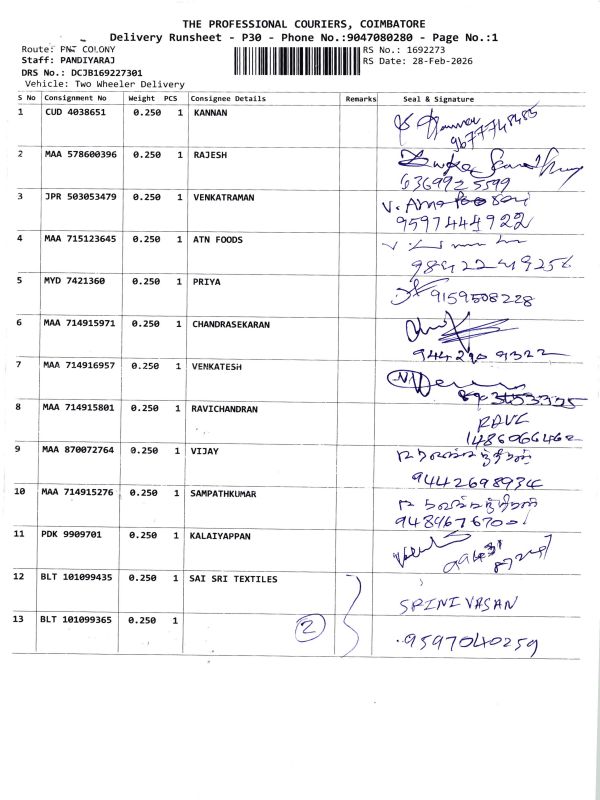 THE PROFESSIONAL COURIERS, COIMBATORE
Delivery Runsheet - P30 - Phone No.:9047080280 - Page No.:1
Route: PNT COLONY
RS No.: 1692273
Staff: PANDIYARAJ
RS Date: 28-Feb-2026
DRS No.: DCJB169227301
Vehicle: Two Wheeler Delivery
S No Consignment No Weight PCS Consignee Details Remarks Seal & Signature
1 CUD 4038651 0.250 1 KANNAN
9677748485
2 MAA 578600396 0.250 1 RAJESH
6369925599
3 JPR 503053479 0.250 1 VENKATRAMAN
9597444922
4 MAA 715123645 0.250 1 ATN FOODS
5 MYD 7421360 0.250 1 PRIYA
9159508228
6 MAA 714915971 0.250 1 CHANDRASEKARAN
7 MAA 714916957 0.250 1 VENKATESH
8 MAA 714915801 0.250 1 RAVICHANDRAN
9 MAA 870072764 0.250 1 VIJAY
9442698934
10 MAA 714915276 0.250 1 SAMPATHKUMAR
11 PDK 9909701 0.250 1 KALAIYAPPAN
12 BLT 101099435 0.250 1 SAI SRI TEXTILES
SRINIVASAN
13 BLT 101099365 0.250 1
2
9597040259